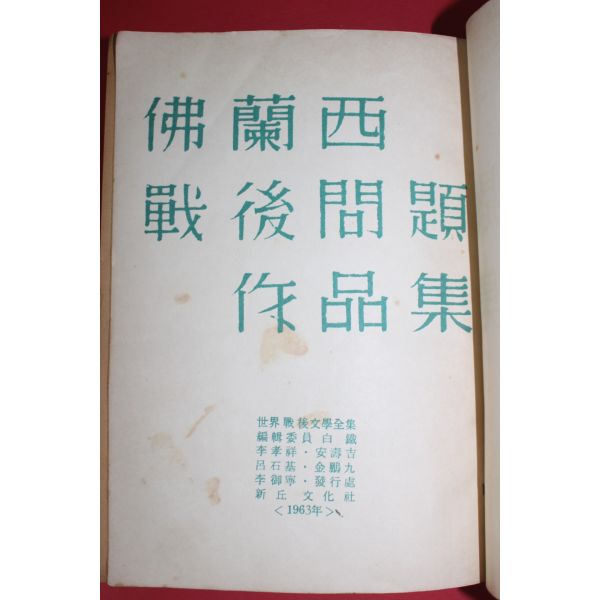 佛蘭西
戰後問題
作品集
世界戰後文學全集
編輯委員 白鐵
李孝祥・安壽吉
呂石基・金鵬九
李御寧・發行處
新丘文化社
<1963年>